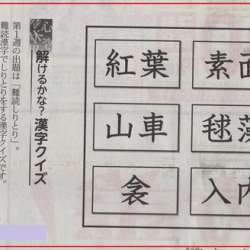 解けるかな?漢字クイズ
第1週の出題は「難読しりとり」。
難読漢字でしりとりをする漢字クイズです。
紅葉
素面
山車
毬藻
衾
入内